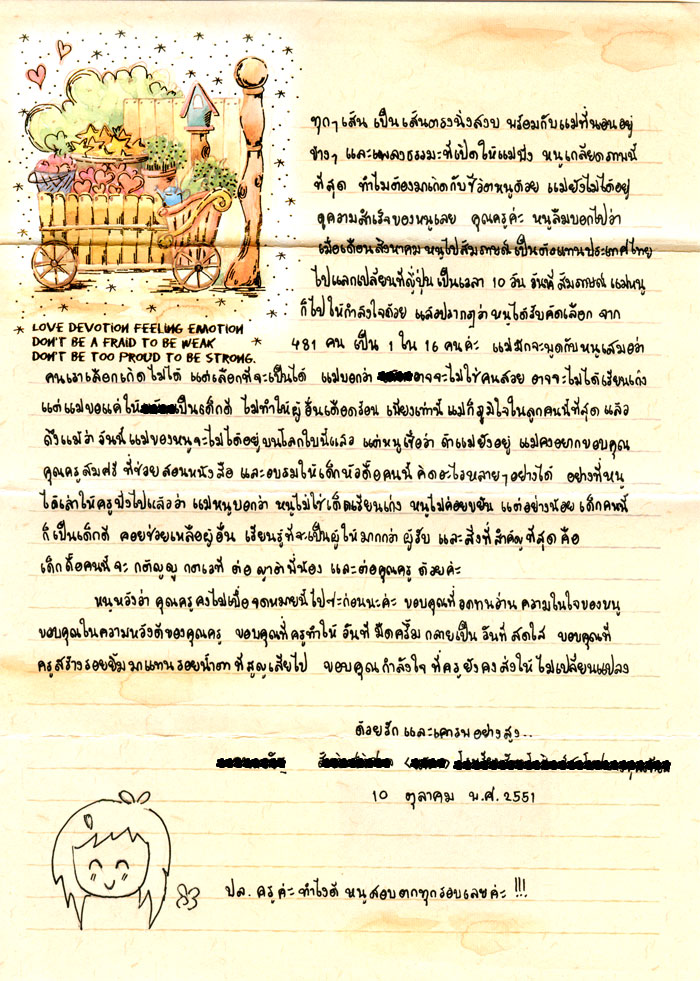 ทุกๆเส้น เป็นเส้นตรงนิ่งสงบ พร้อมกับแม่ที่นอนอยู่
ข้างๆ และเพลงธรรมะที่เปิดให้แม่ฟัง หนูเกลียดภาพนี้
ที่สุด ทำไมต้องมาเกิดกับชีวิตหนูด้วย แม่ยังไม่ได้อยู่
ดูความสำเร็จของหนูเลย คุณครูค่ะ หนูลืมบอกไปว่า
เมื่อเดือนสิงหาคม หนูไปสัมภาษณ์ เป็นตัวแทนประเทศไทย
ไปแลกเปลี่ยนที่ญี่ปุ่น เป็นเวลา 10 วัน วันที่สัมภาษณ์ แม่หนู
ก็ไปให้กำลังใจด้วย แล้วปรากฏว่า หนูได้รับคัดเลือก จาก
481 คน เป็น 1 ใน 16 คนค่ะ แม่มักจะพูดกับหนูเสมอว่า
LOVE DEVOTION FEELING EMOTION
DON'T BE A FRAID TO BE WEAK
DON'T BE TOO PROUD TO BE STRONG.
คนเราเลือกเกิดไม่ได้ แต่เลือกที่จะเป็นได้ แม่บอกว่า อาจจะไม่ใช่คนสวย อาจจะไม่ได้เรียนเก่ง
แต่แม่ขอแค่ให้ เป็นเด็กดี ไม่ทำให้ผู้อื่นเดือดร้อน เพียงเท่านี้ แม่ก็ภูมิใจในลูกคนนี้ที่สุด แล้ว
ถึงแม้ว่า วันนี้แม่ของหนูจะไม่ได้อยู่บนโลกใบนี้แล้ว แต่หนูเชื่อว่า ถ้าแม่ยังอยู่ แม่คงอยากขอบคุณ
คุณครูสมศรี ที่ช่วยสอนหนังสือ และอบรมให้เด็กหัวดื้อคนนี้ คิดอะไรหลายๆอย่างได้ อย่างที่หนู
ได้เล่าให้ครูฟังไปแล้วว่า แม่หนูบอกว่า หนูไม่ใช่เด็กเรียนเก่ง หนูไม่ค่อยขยัน แต่อย่างน้อย เด็กคนนี้
ก็เป็นเด็กดี คอยช่วยเหลือผู้อื่น เรียนรู้ที่จะเป็นผู้ให้มากกว่า ผู้รับ และสิ่งที่สำคัญที่สุด คือ
เด็กดื้อคนนี้จะ กตัญญู กตเวที ต่อ ญาติพี่น้อง และต่อคุณครู ด้วยค่ะ
หนูหวังว่า คุณครูคงไม่เบื่อจดหมายนี้ไปซะก่อนนะค่ะ ขอบคุณที่อดทนอ่าน ความในใจของหนู
ขอบคุณในความหวังดีของคุณครู ขอบคุณที่ครูทำให้ วันที่ มืดครึ้ม กลายเป็น วันที่ สดใส ขอบคุณที่
ครูสร้างรอยยิ้ม มาแทนรอยน้ำตา ที่สูญเสียไป ขอบคุณ กำลังใจ ที่ครูยังคงส่งให้ ไม่เปลี่ยนแปลง
ด้วยรัก และเคารพอย่างสูง..
10 ตุลาคม พ.ศ. 2551
ปล. ครูค่ะ ทำไงดี หนูสอบตกทุกรอบเลยค่ะ !!!